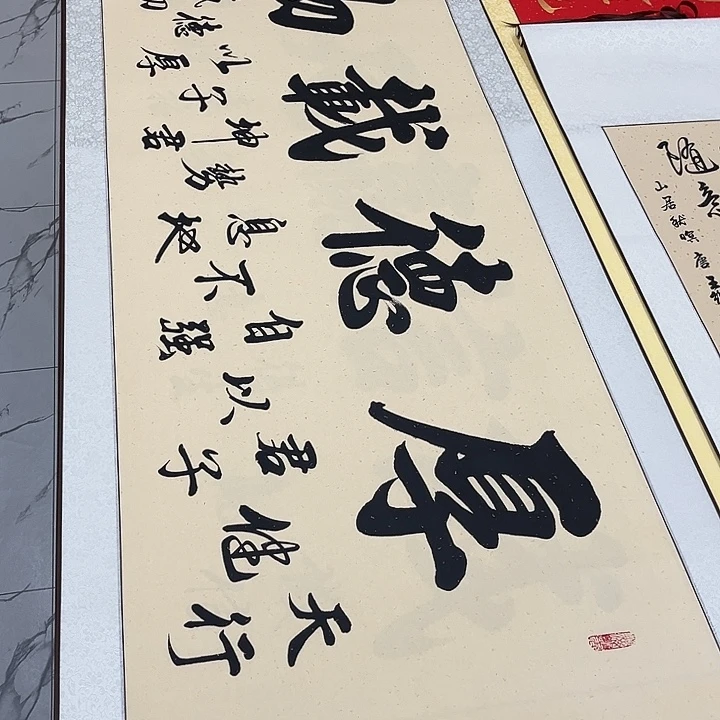 厚德載物
天行健君子以自强不息地勢坤君子以厚德載物
隨意
山居秋暝唐王維